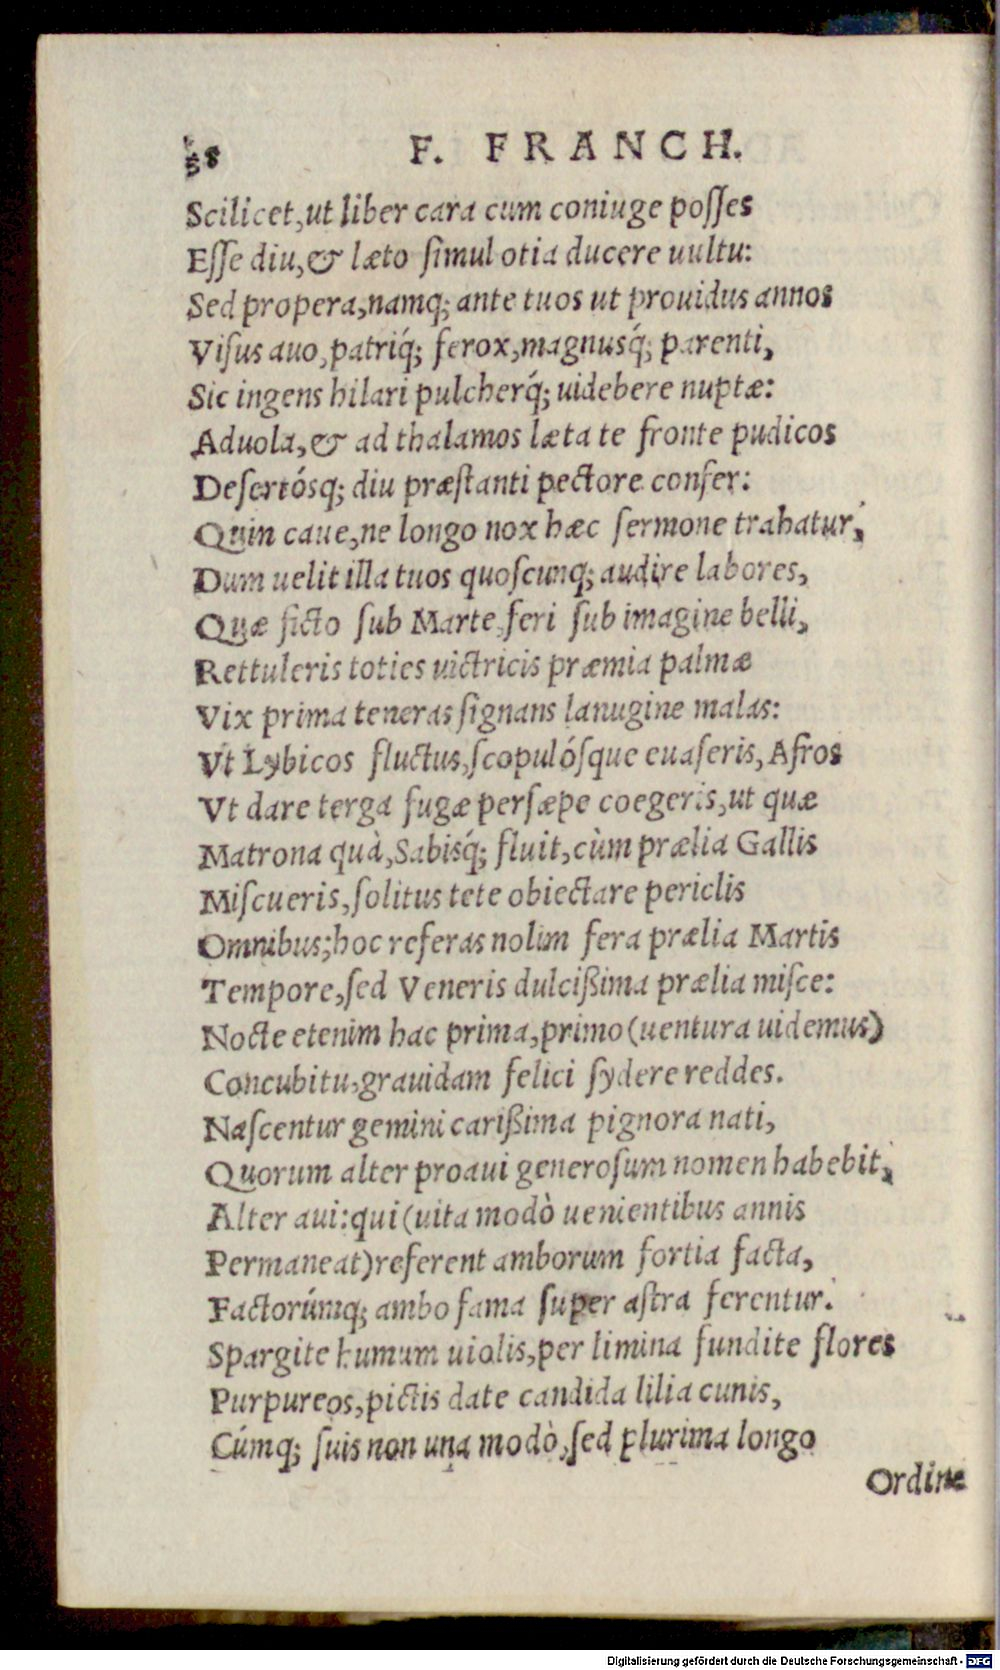 58 F. FRANCH.
Scilicet, ut liber cara cum coniuge poſſes
Eſſe diu, & læto ſimul otia ducere uultu:
Sed propera, namq; ante tuos ut prouidus annos
Viſus auo, patriq́; ferox, magnusq́; parenti,
Sic ingens hilari pulcherq́; uidebere nuptæ:
Aduola, & ad thalamos læta te fronte pudicos
Deſertósq; diu præſtanti pectore confer:
Quin caue, ne longo nox hæc ſermone trahatur,
Dum uelit illa tuos quoſcunq; audire labores,
Quæ ficto ſub Marte, feri ſub imagine belli,
Rettuleris toties uictricis præmia palmæ
Vix prima teneras ſignans lanugine malas:
Vt Lybicos fluctus, ſcopulóſque euaſeris, Afros
Vt dare terga fugæ perſæpe coegeris, ut quæ
Matrona quà, Sabisq́; fluit, cùm prælia Gallis
Miſcueris, ſolitus tete obiectare periclis
Omnibus; hoc referas nolim fera prælia Martis
Tempore, ſed Veneris dulcißima prælia miſce:
Nocte etenim hac prima, primo (uentura uidemus)
Concubitu, grauidam felici ſydere reddes.
Naſcentur gemini carißima pignora nati,
Quorum alter proaui generoſum nomen habebit,
Alter aui: qui (uita modò uenientibus annis
Permaneat) referent amborum fortia facta,
Factorúmq; ambo fama ſuper aſtra ferentur.
Spargite humum uiolis, per limina fundite flores
Purpureos, pictis date candida lilia cunis,
Cúmq; ſuis non una modò, ſed plurima longo
Ordine
Digitalisierung gefördert durch die Deutsche Forschungsgemeinschaft - DFG